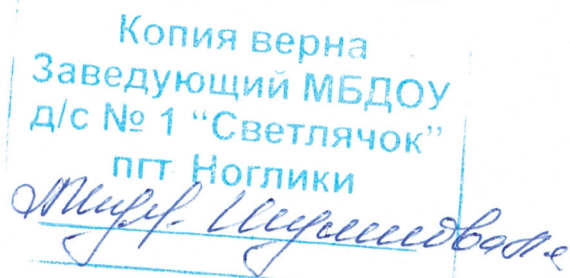 Копия верна
Заведующий МБДОУ
д/с № 1 “Светлячок”
пгт Ноглики